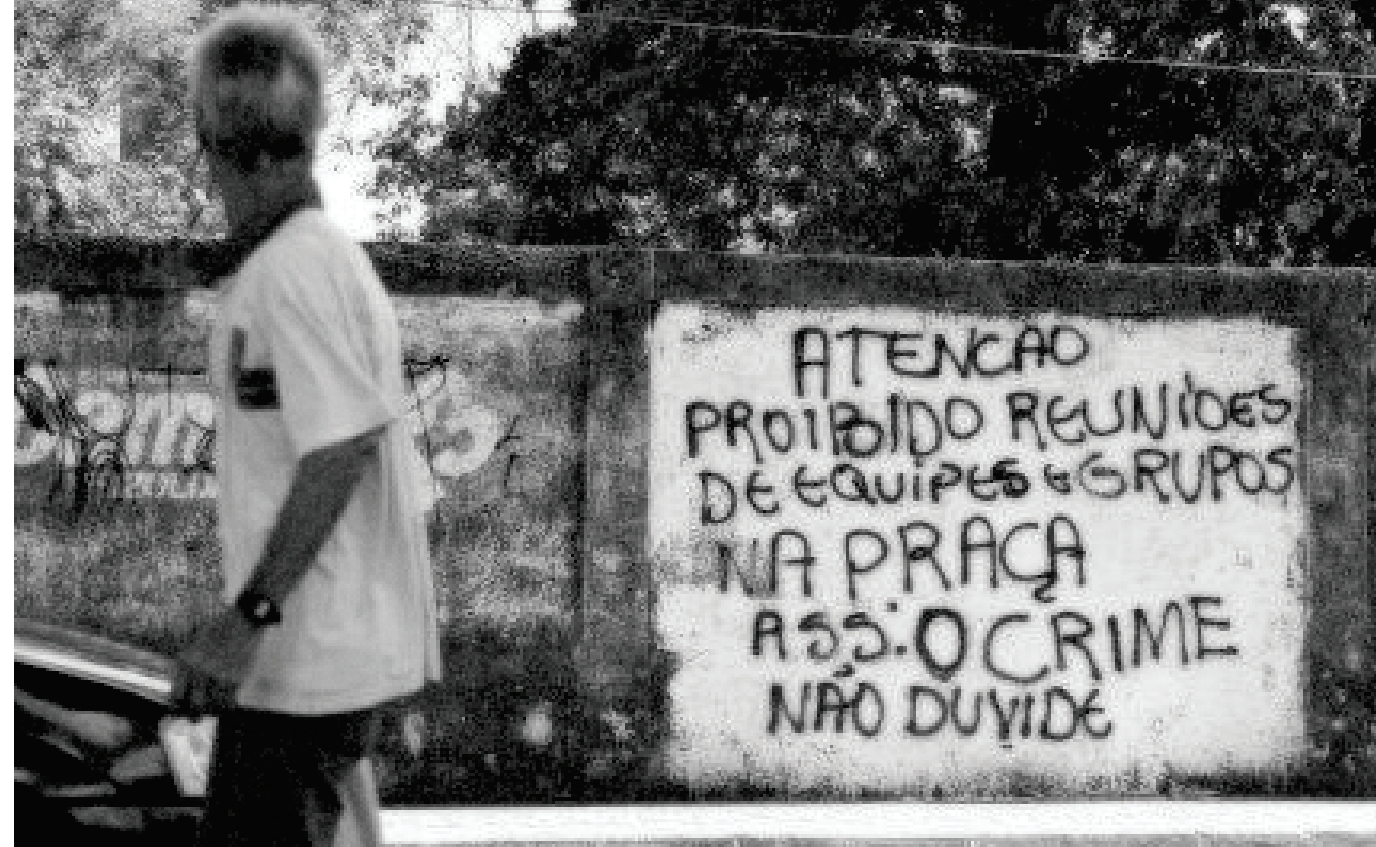 ATENCAO
PROIBIDO REUNIÕES
DE EQUIPES E GRUPOS
NA PRAÇA
ASS: O CRIME
NÃO DUVIDE